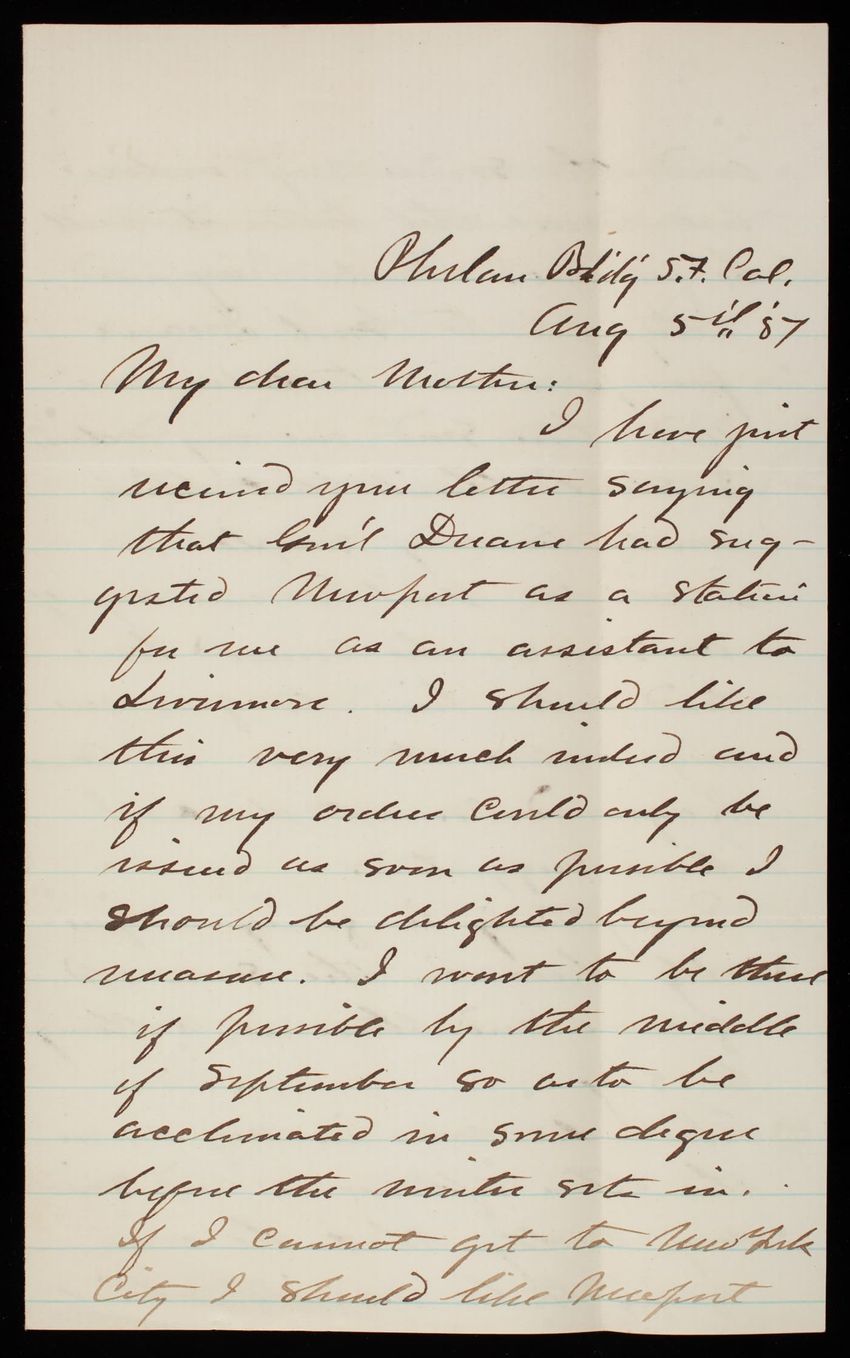 Phelan Bldg S.F. Cal.
Aug 5th '87
My dear Mother:
I have just
received your letter saying
that Gen'l Duane had sug-
gested Newport as a station
for me as an assistant to
Livermore. I should like
this very much indeed and
if my orders could only be
issued as soon as possible I
should be delighted beyond
measure. I want to be there
if possible by the middle
of September so as to be
acclimated in some degree
before the winter sets in.
If I cannot get to New York
City I should like Newport